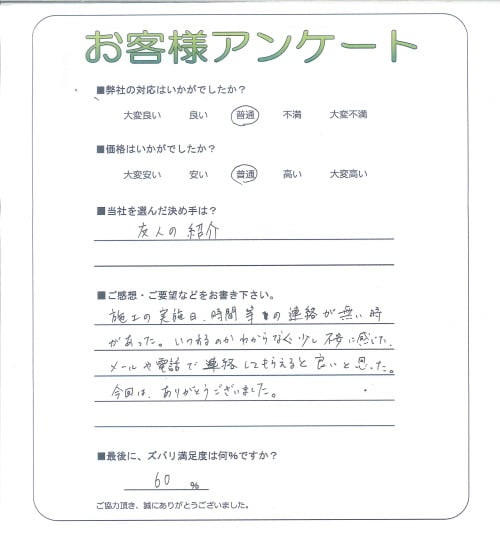 お客様アンケート
■弊社の対応はいかがでしたか？
大変良い 良い 普通 不満 大変不満
■価格はいかがでしたか？
大変安い 安い 普通 高い 大変高い
■当社を選んだ決め手は？
友人の紹介
■ご感想・ご要望などをお書き下さい。
施工の実施日、時間等の連絡が無い時
があった。いつ来るのかわからなく少し不安に感じた。
メールや電話で連絡してもらえると良いと思った。
今回は、ありがとうございました。
■最後に、ズバリ満足度は何%ですか？
60 %
ご協力頂き、誠にありがとうございました。